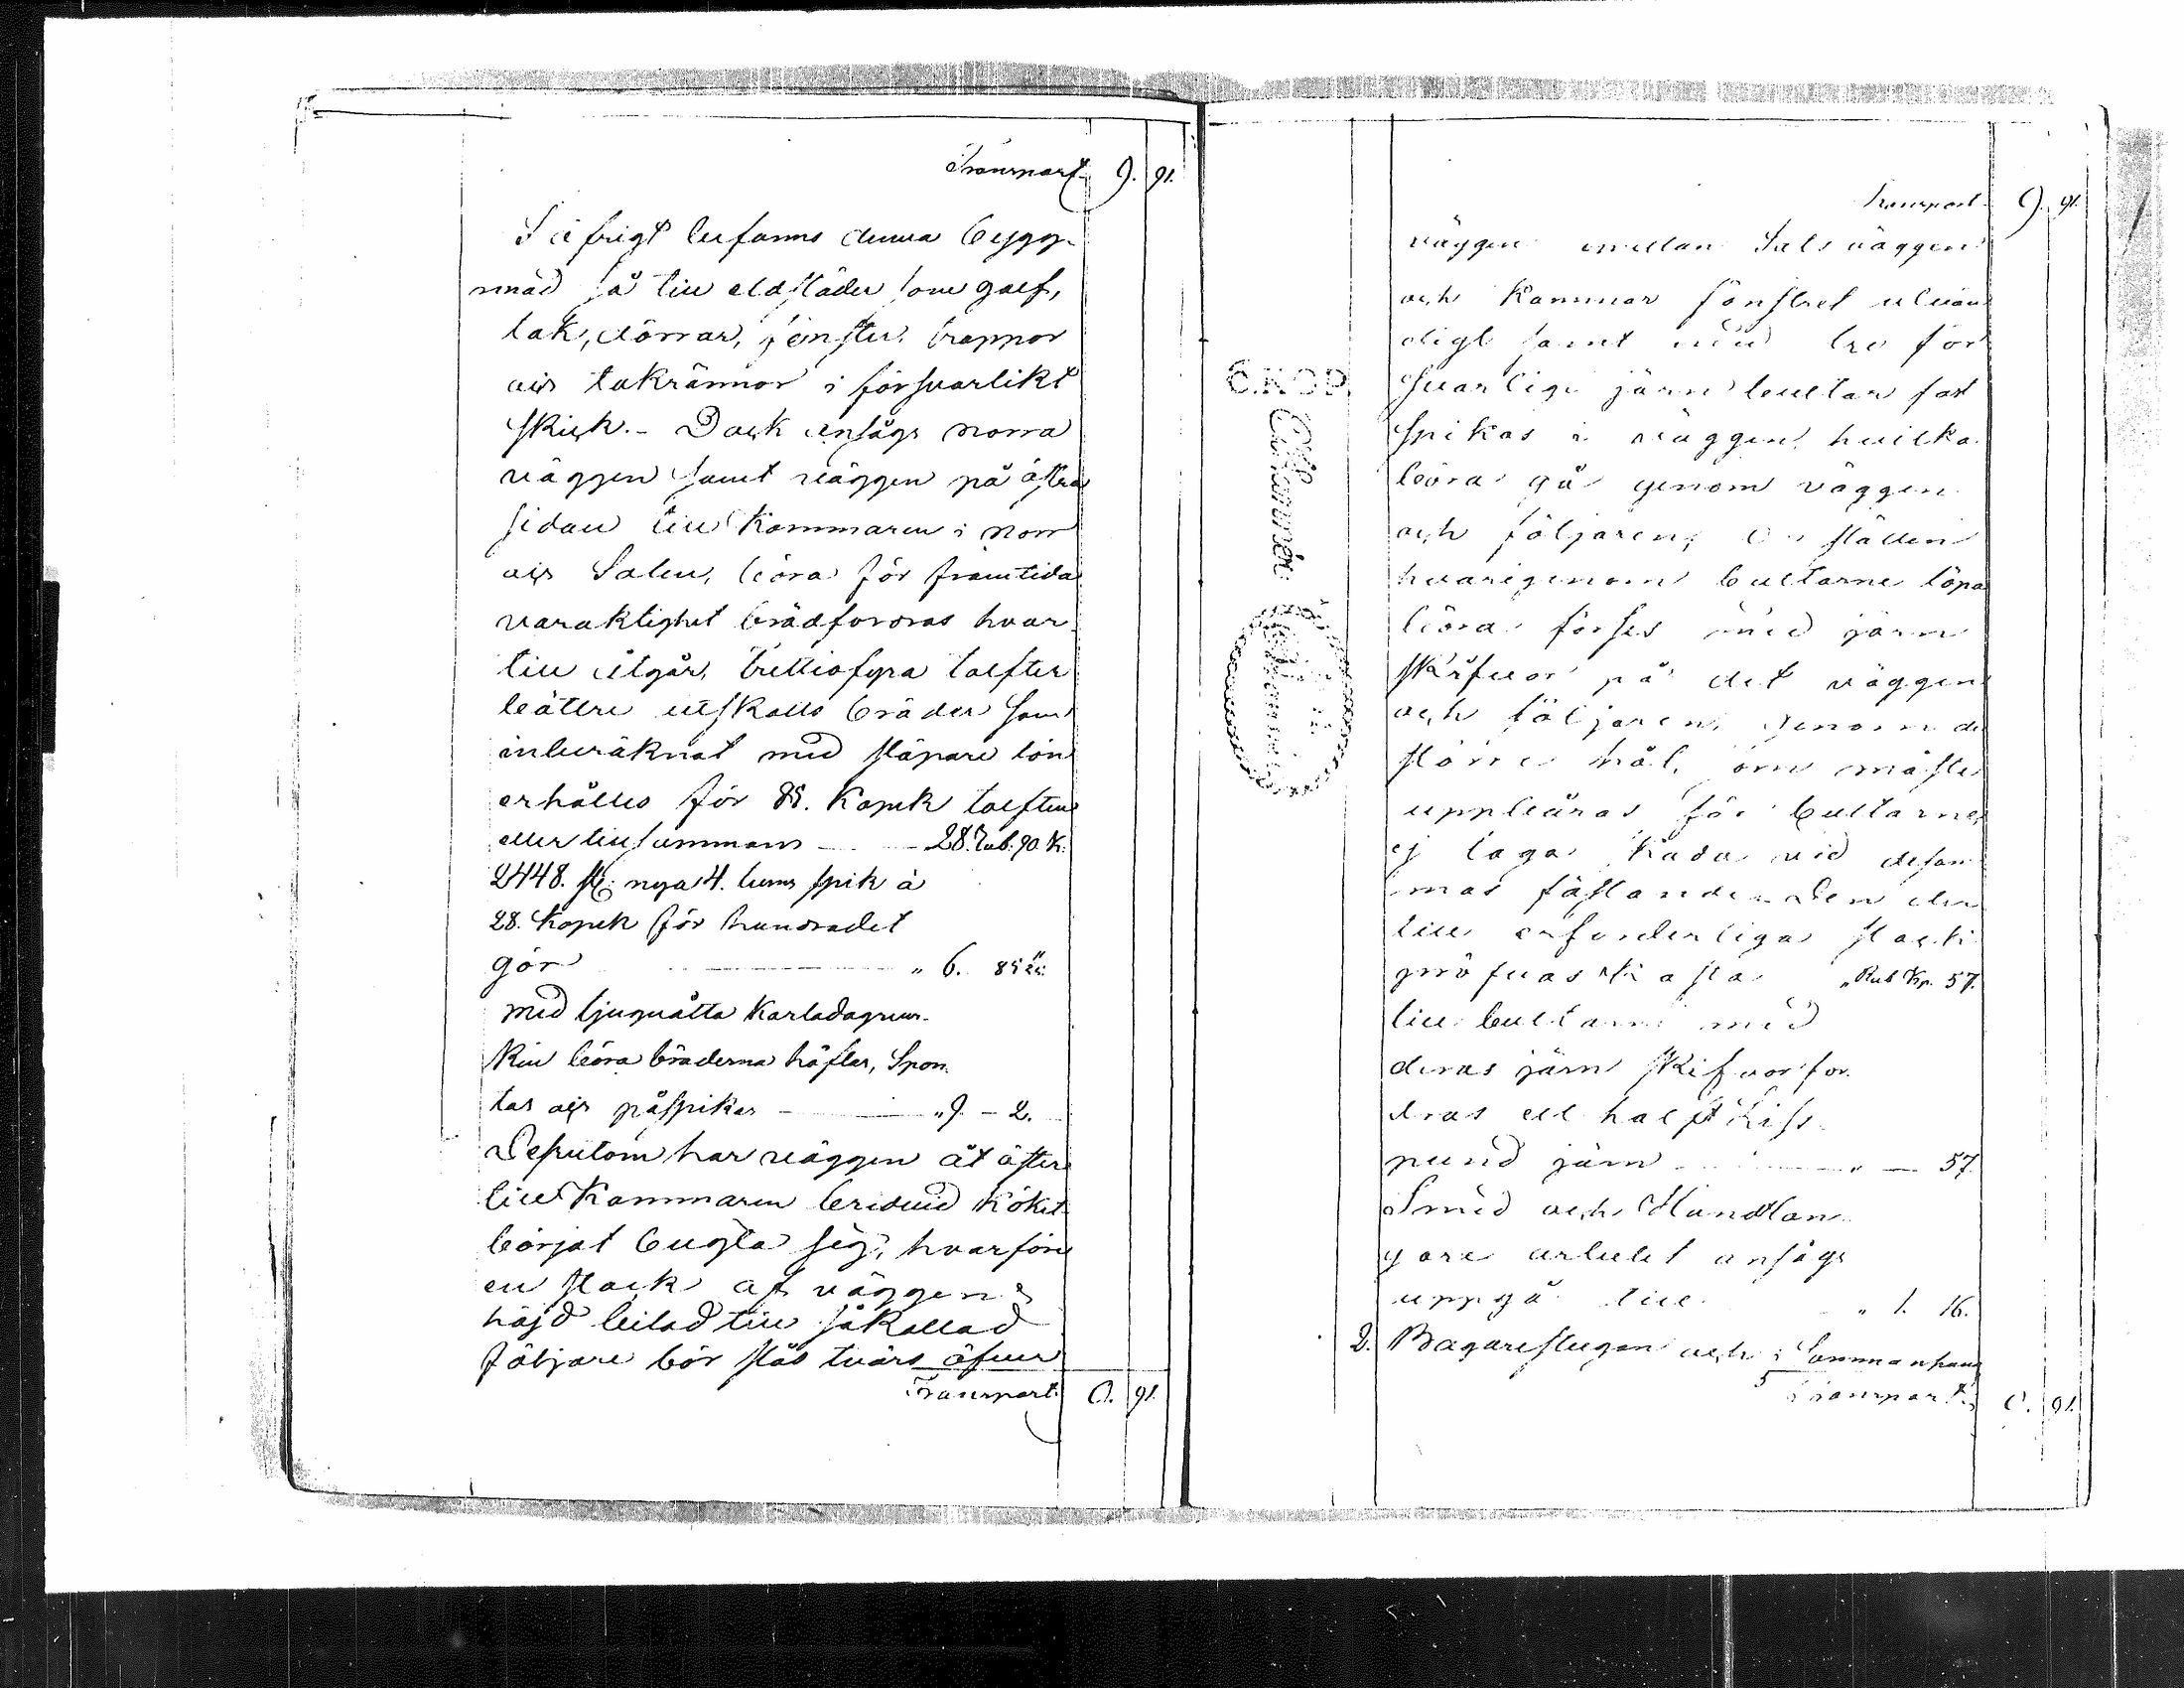 Transport 9. 91.
I öfrigt befanns denna bygg-
nad så till eldstäder som golf,
tak, dörrar, fönster, trappor
och takrännor i försvarlikt
skick. - Dock ansågs norra
väggen samt väggen på östra
sidan till Kammaren i norr
och Salen, böra för framtida
varaktighet brädfodras hvar-
till åtgår, trettiofyra tolfter
bättre utskotts bräder som
inberäknat med släpare lön
erhålles för 85. Kopek tolften
eller tillsammans - - 28. Rub. 90. K.
2448. st. nya 4. tums spik à
28. Kopek för hundradet
gör " 6. 85
med tjuguåtta Karladagsver-
ken böra bräderna höflas, Spon-
tas och påspikas " 9 - 2.
Dessutom har väggen åt öster
till Kammaren bredvid Köket
börjat bugta sig, hvarföre
en stock af väggens
höjd bilad till så kallad
följare bör slås tvärs öfver
Transport 9. 91.
Transport 9. 91.
väggen emellan Salsväggen
och Kammar fönstret utvän-
digt samt med tre för-
svarliga järn bultar fast
spikas i väggen, hvilka
böra gå genom väggen
och följaren, ställen
hvarigenom bultarne löpa
böra förses med järn
skifvor på det väggen
och följaren, genom de
större hål, som måste
uppbäras för bultarne,
ej taga skada vid desam-
mas fästande. Den der
till erforderliga stock
Rub Kp. 57.
till bultarne med
deras järn skifvor for-
dras ett halft Liss-
pund järn " - 57
Smed och Handtlan-
gare arbetet ansågs
uppgå till " 1. 16.
2. Bagarestugan och i Sammanhang
Transport 9. 91.
6.KOP.